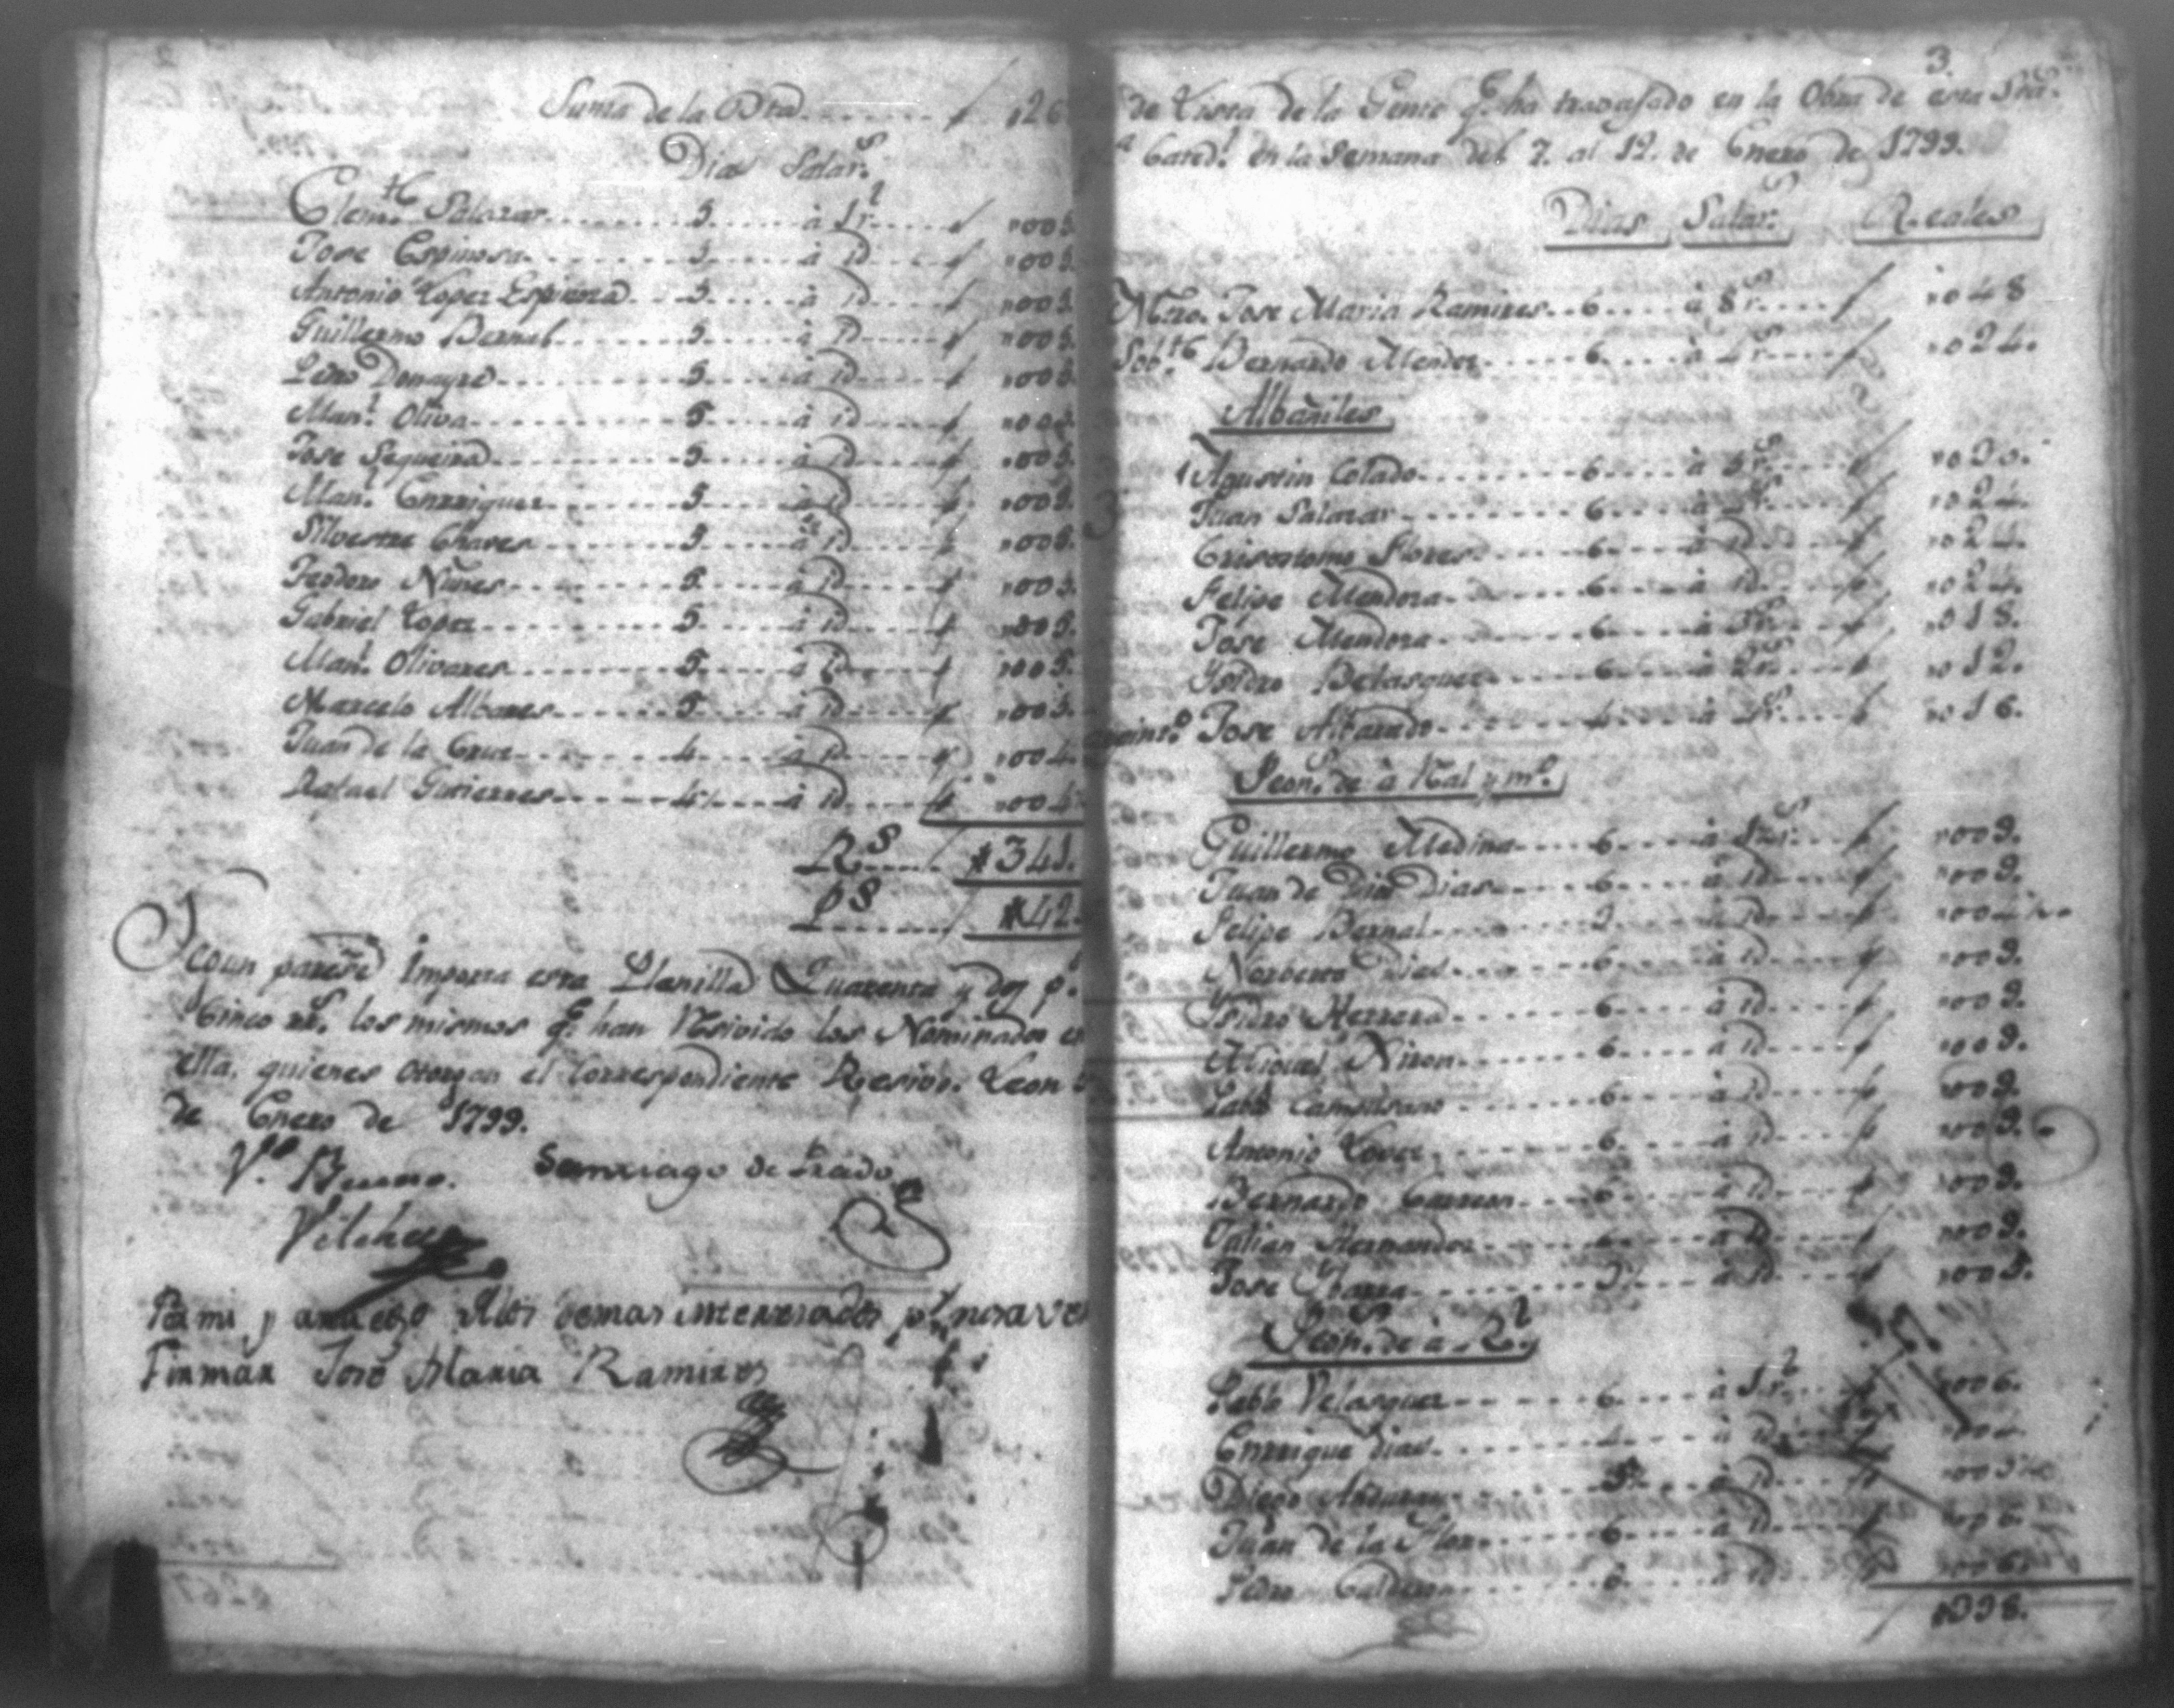 Suma de la Bta......... / ,26
Dias Salar.s
Clem.te Salazar........ 5..... à 1 r.l.... / ,,005.
Jose Espinosa........ 5..... à id.... / ,,005.
Antonio Lopez Espinoza.. 5..... à id.... / ,,005.
Guillermo Bernal..... 5..... à id.... / ,,005.
Pedro Donayre....... 5..... à id.... / ,,005.
Man.l Oliva......... 5..... à id.... / ,,005.
Jose Sequeira....... 5..... à id.... / ,,005.
Man.l Enrriquez...... 5..... à id.... / ,,005.
Silvestre Chaves..... 5..... à id.... / ,,005.
Teodoro Nuñes....... 5..... à id.... / ,,005.
Gabriel Lopez........ 5..... à id.... / ,,005.
Man.l Olivares....... 5..... à id.... / ,,005.
Marcelo Albares...... 5..... à id.... / ,,005.
Juan de la Cruz...... 4..... à id.... / ,,004.
Rafael Gutierres...... 4..... à id.... / ,,004
R.s..... / 341.
P.s..... / 42.
Segun parese Importa esta Planilla Quarenta y dos p.s
Cinco rr.s los mismos q.e han Resivido los Nominados en
ella, quienes otorgan el Correspondiente Resivo. Leon 5
de Enero de 1799.
V.o Bueno. Santiago de Prado
Vilches
Por mi y a los demas interesados p.r no saver
Firmar José Maria Ramires
3.
de Lista de la Gente q.e ha travajado en la Obra de esta Sta.
Cated.l en la Semana del 7. al 12. de Enero de 1799.
Dias Salar.s Reales
Mtro. Jose Maria Ramires.. 6.... à 8 r.s.... / ,,048
Sob.te Bernardo Mendez..... 6..... à 4 r.s.... / ,,024.
Albañiles
Agustin Colado........ 6.... à 5 r.s.... / ,,030.
Juan Salazar......... 6.... à 4 r.s.... / ,,024.
Crisostomo Flores..... 6.... à id.... / ,,024.
Felipe Mendoza...... 6.... à id.... / ,,024.
Jose Mendoza....... 6.... à 3 r.s.... / ,,018.
Ysidro Belasquez..... 6.... à 2 r.s.... / ,,012.
Jose Albarado...... 4.... à 4 r.s.... / ,,016.
Peon.s de à Real y m.o
Guillermo Medina..... 6.... à 1½ r.s.... / ,,009.
Juan de Dios Dias..... 6.... à id.... / ,,009.
Felipe Bernal....... 3.... à id.... / ,,004½
Norberto Dias...... 6.... à id.... / ,,009.
Ysidro Herrera...... 6.... à id.... / ,,009.
Miguel Niron....... 6.... à id.... / ,,009.
Pablo Campusano..... 6.... à id.... / ,,009.
Antonio Lopez...... 6.... à id.... / ,,009.
Bernardo Carreon.... 6.... à id.... / ,,009.
Julian Hernandez.... 6.... à id.... / ,,009.
Jose Ybarra........ à id.... / ,,005.
Peon.s de à R.l
Pablo Velasquez..... 6.... à 1 r.l.... / ,,006.
Enrrique Dias...... 4.... à id.... ,,004
Diego...... à id....
Juan de la Flor..... 6.... à id.... ,,006.
Pedro Calderon..... 6.... à id.... ,,006.
/ ,,338.